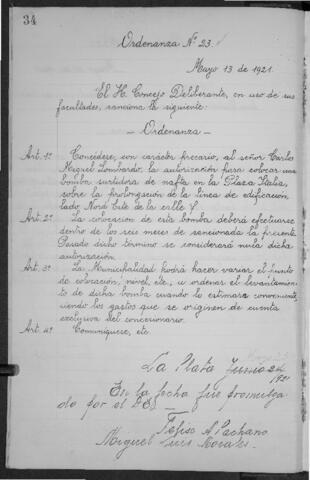 34
Ordenanza Nº 23.
Mayo 13 de 1921.
El H. Concejo Deliberante, en uso de sus
facultades, sanciona la siguiente:
— Ordenanza —
Art. 1º Concédese, con carácter precario, al señor Carlos
Miguel Lombardo, la autorización para colocar una
bomba surtidora de nafta en la Plaza Italia,
sobre la prolongación de la línea de edificación,
lado Nord Este de la calle 7.
Art. 2º La colocación de esta bomba deberá efectuarse
dentro de los seis meses de sancionada la presente.
Pasado dicho término se considerará nula dicha
autorización.
Art. 3º La Municipalidad podrá hacer variar el punto
de colocación, nivel, etc., u ordenar el levantamien-
to de dicha bomba cuando lo estimara conveniente,
siendo los gastos que se originen de cuenta
exclusiva del concesionario.
Art. 4º Comuníquese, etc.
La Plata Junio 2 de
1921
En la fecha fué promulga
do por el D.E.
A Pachano
Miguel Luis Morales